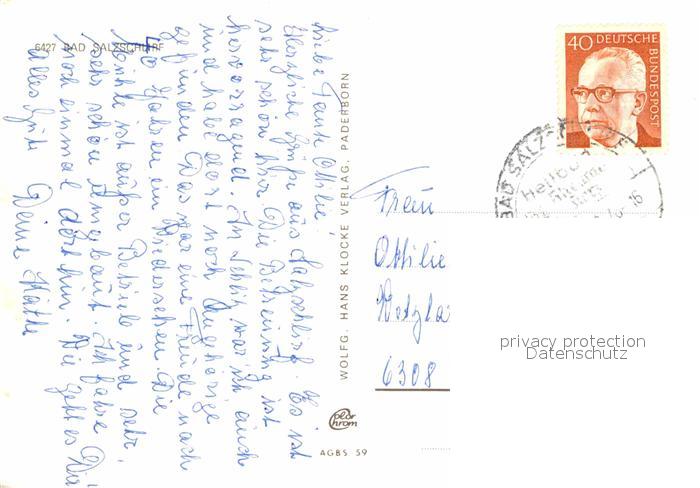 6427 BAD SALZSCHLIRF
Liebe Tante Ottilie!
Herzliche Grüße aus Salzschlirf. Es ist
sehr schön hier. Die Betreuung ist
hervorragend. In Schlitz war ich auch
und habe dort noch Angehörige
gefunden. Das war eine Freude nach
40 Jahren ein Wiedersehen. Die
Mühle ist außer Betrieb und sehr,
sehr schön umgebaut. Ich fahre
noch einmal dorthin. Wie geht es Dir
Alles Gute Deine Käthe
WOLFG. HANS KLOCKE VERLAG, PADERBORN
color chrom
AGBS 59
40 DEUTSCHE BUNDESPOST
BAD SALZ
Heilbad
Rheuma
16
Frau
Ottilie
6308
privacy protection
Datenschutz